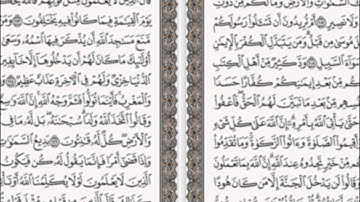 السَّمَٰوَٰتِ وَالْأَرْضِ وَمَا لَكُم مِّن دُونِ
نَصِيرٍ ۝ أَمْ تُرِيدُونَ أَن تَسْـَٔلُوا رَسُولَكُمْ
مُوسَىٰ مِن قَبْلُ وَمَن يَتَبَدَّلِ الْكُفْرَ بِالْإِيمَٰنِ
سَوَاءَ السَّبِيلِ ۝ وَدَّ كَثِيرٌ مِّنْ أَهْلِ الْكِتَٰبِ
مِّن بَعْدِ إِيمَٰنِكُمْ كُفَّارًا حَسَدًا
مِّن بَعْدِ مَا تَبَيَّنَ لَهُمُ الْحَقُّ فَاعْفُوا
يَأْتِيَ اللَّهُ بِأَمْرِهِ إِنَّ اللَّهَ عَلَىٰ كُلِّ شَيْءٍ
وَأَقِيمُوا الصَّلَوٰةَ وَءَاتُوا الزَّكَوٰةَ وَمَا
مِّنْ خَيْرٍ تَجِدُوهُ عِندَ اللَّهِ إِنَّ اللَّهَ بِمَا تَعْمَلُونَ
وَقَالُوا لَن يَدْخُلَ الْجَنَّةَ إِلَّا مَن كَانَ هُودًا
يَوْمَ الْقِيَٰمَةِ فِيمَا كَانُوا فِيهِ يَخْتَلِفُونَ ۝
مَنَعَ مَسَٰجِدَ اللَّهِ أَن يُذْكَرَ فِيهَا اسْمُهُ وَسَعَىٰ
أُولَٰئِكَ مَا كَانَ لَهُمْ أَن يَدْخُلُوهَا إِلَّا خَائِفِينَ
الدُّنْيَا خِزْيٌ وَلَهُمْ فِي الْآخِرَةِ عَذَابٌ عَظِيمٌ ۝
وَالْمَغْرِبُ فَأَيْنَمَا تُوَلُّوا فَثَمَّ وَجْهُ اللَّهِ إِنَّ اللَّهَ وَٰسِعٌ
وَقَالُوا اتَّخَذَ اللَّهُ وَلَدًا سُبْحَٰنَهُ بَل لَّهُ مَا فِي
وَالْأَرْضِ كُلٌّ لَّهُ قَٰنِتُونَ ۝ بَدِيعُ السَّمَٰوَٰتِ
وَإِذَا قَضَىٰ أَمْرًا فَإِنَّمَا يَقُولُ لَهُ كُن فَيَكُونُ ۝
الَّذِينَ لَا يَعْلَمُونَ لَوْلَا يُكَلِّمُنَا اللَّهُ أَوْ تَأْتِينَا